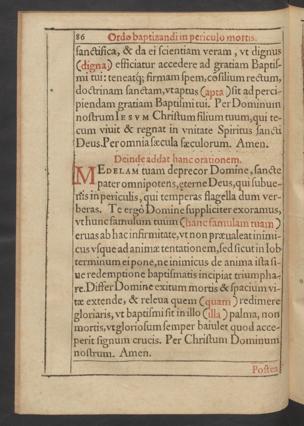 86 Ordo baptizandi in periculo mortis.
sanctifica, & da ei scientiam veram, vt dignus
(digna) efficiatur accedere ad gratiam Baptis-
mi tui: teneatq; firmam spem, cõsilium rectum,
doctrinam sanctam, vt aptus (apta) sit ad perci-
piendam gratiam Baptismi tui. Per Dominum
nostrum IESVM Christum filium tuum, qui te-
cum viuit & regnat in vnitate Spiritus sancti
Deus. Per omnia sæcula sæculorum. Amen.
Deinde addat hanc orationem.
MEDELAM tuam deprecor Domine, sancte
pater omnipotens, æterne Deus, qui subue-
nis in periculis, qui temperas flagella dum ver-
beras. Te ergò Domine suppliciter exoramus,
vt hunc famulum tuum (hanc famulam tuam)
eruas ab hac infirmitate, vt non præualeat inimi-
cus vsque ad animæ tentationem, sed sicut in Iob
terminum ei pone, ne inimicus de anima ista si-
ue redemptione baptismatis incipiat triumpha-
re. Differ Domine exitum mortis & spacium vi-
tæ extende, & releua quem (quam) redimere
gloriaris, vt baptismi sit in illo (illa) palma, non
mortis, vt gloriosum semper baiulet quod acce-
perit signum crucis. Per Christum Dominum
nostrum. Amen.
Postea